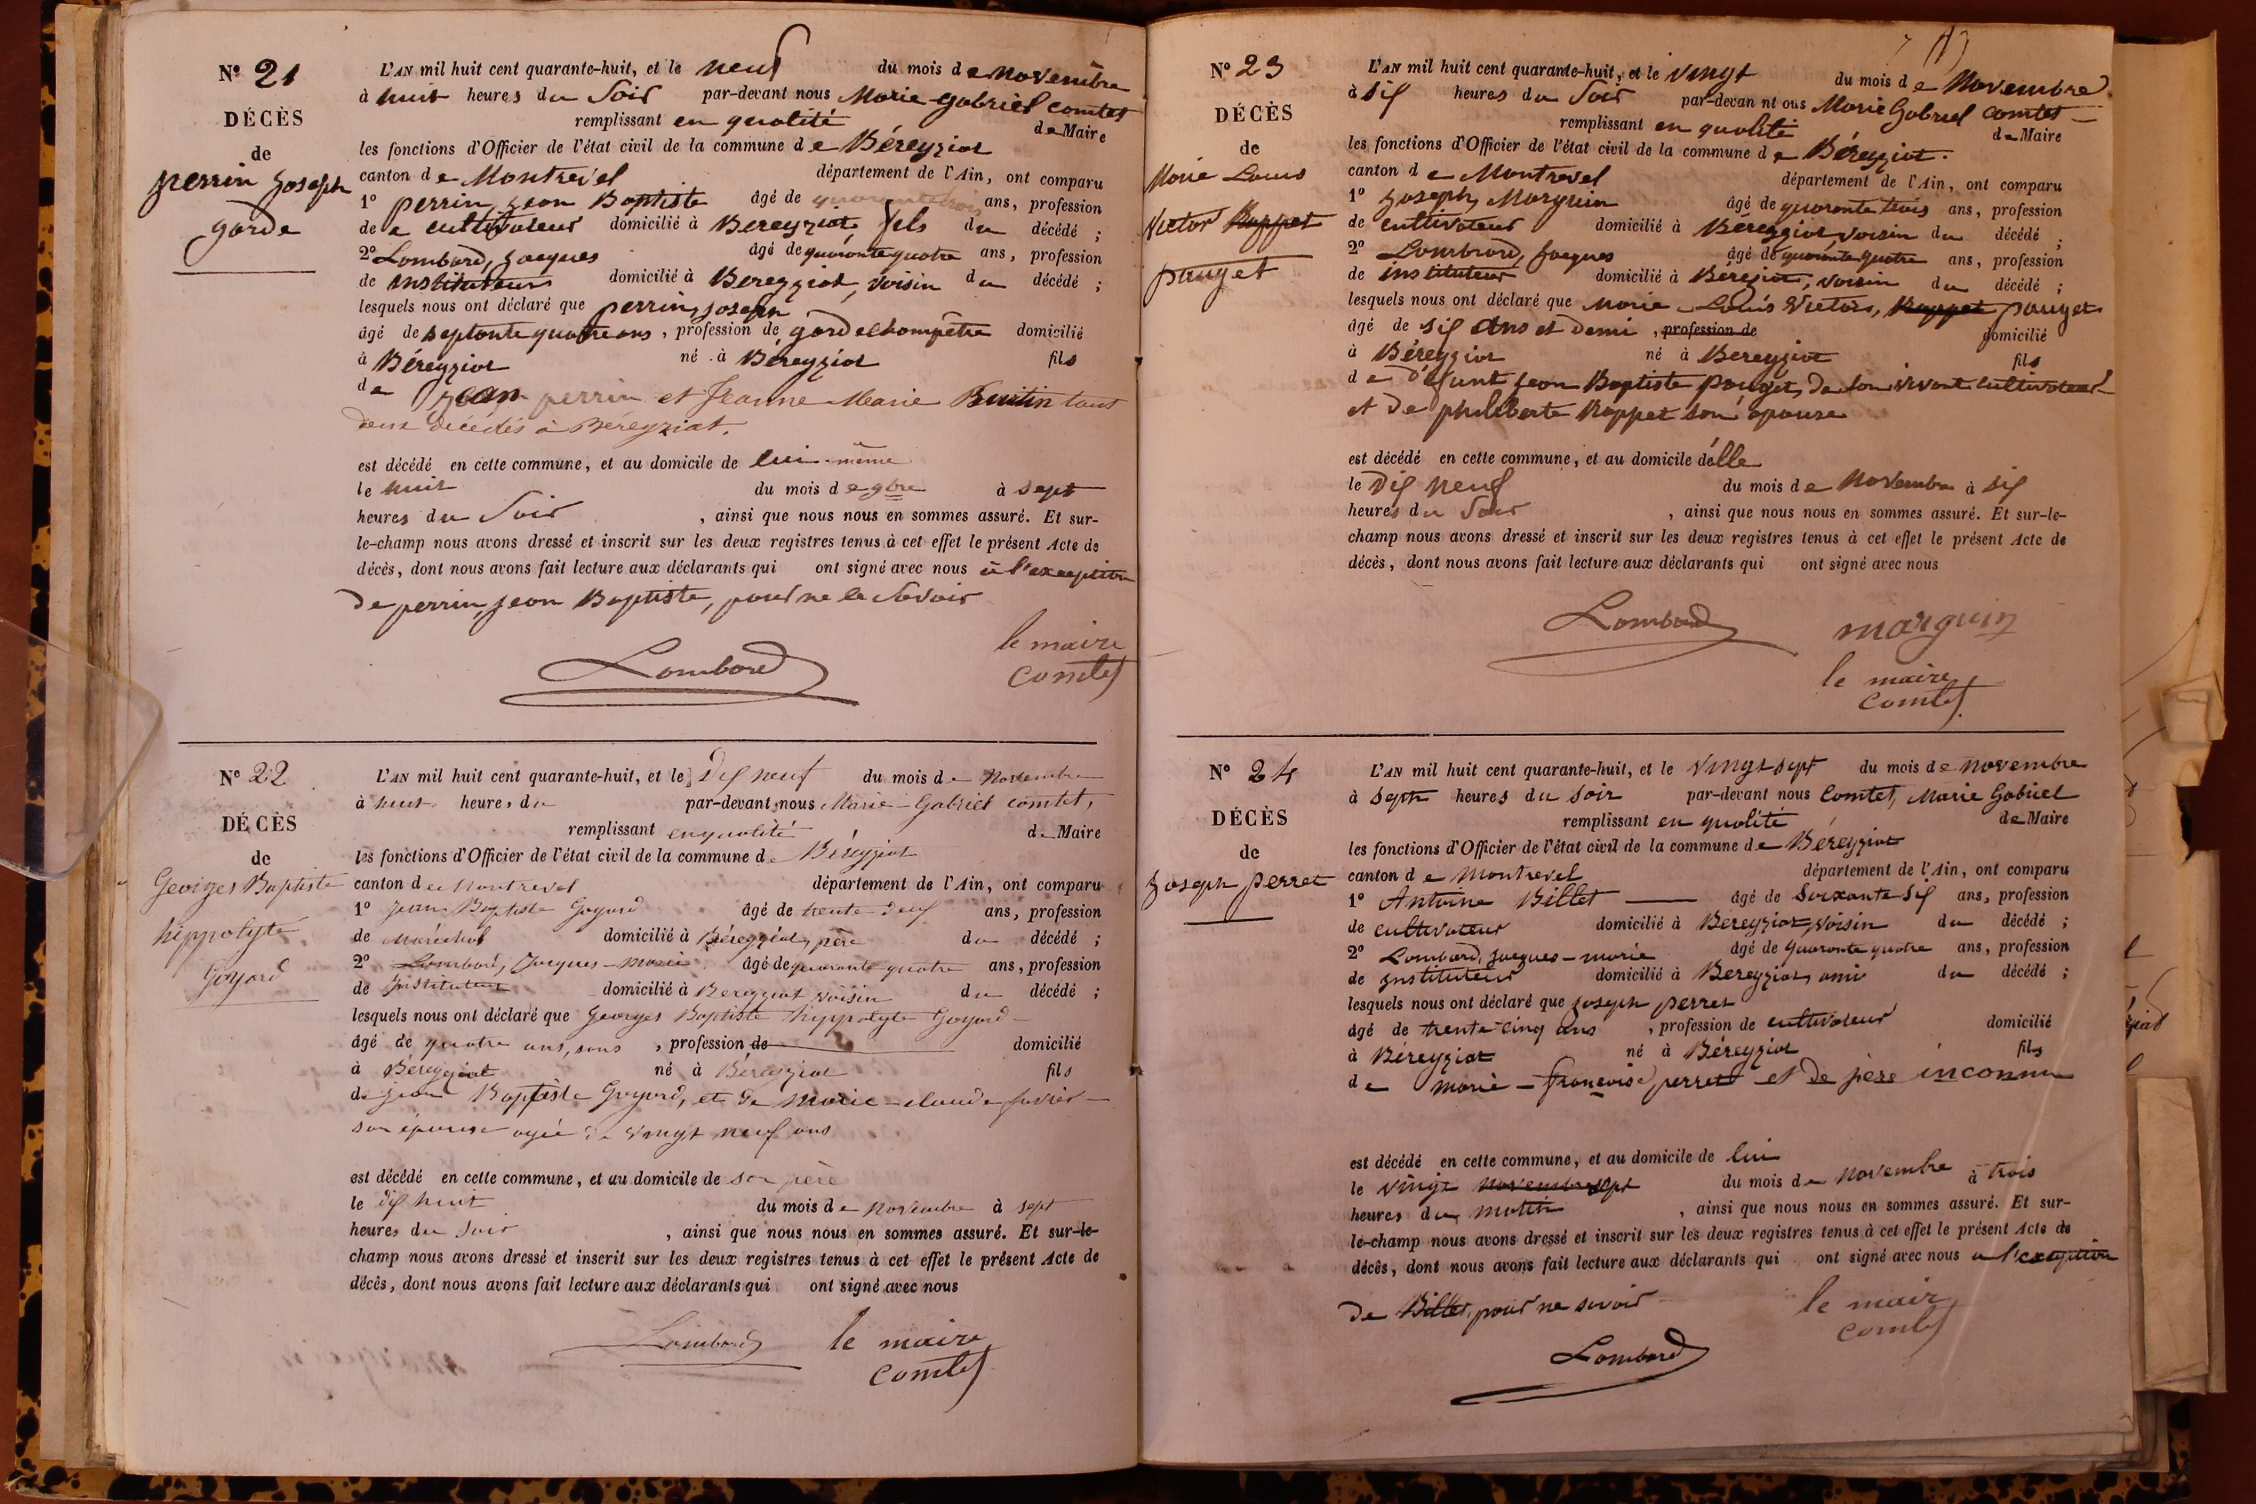 N° 21
DÉCÈS
de
perrin Joseph
garde
L'AN mil huit cent quarante-huit, et le neuf du mois de novembre
à huit heures du Soir par-devant nous Marie-Gabriel comtet
remplissant en qualité de Maire
les fonctions d'Officier de l'état civil de la commune de Béreyziat
canton de Montrevel département de l'Ain, ont comparu
1° perrin, jean Baptiste âgé de ans, profession
de cultivateur domicilié à Bereyziat, fils du décédé ;
2° Lombard, jacques âgé de quarante quatre ans, profession
de instituteur domicilié à Bereyziat, voisin du décédé ;
lesquels nous ont déclaré que perrin, joseph
âgé de septante quatre ans, profession de garde champêtre domicilié
à Béreyziat né à Béreyziat fils
de jean perrin et Jeanne Marie tous
deux décédés à Béreyziat.
est décédé en cette commune, et au domicile de lui-même
le huit du mois de 9bre à sept
heures du Soir, ainsi que nous nous en sommes assuré. Et sur-
le-champ nous avons dressé et inscrit sur les deux registres tenus à cet effet le présent Acte de
décès, dont nous avons fait lecture aux déclarants qui ont signé avec nous à l'exception
de perrin, jean Baptiste, pour ne le Savoir
Lombard
le maire
comtet
N° 22
DÉCÈS
de
Georges Baptiste
hippolyte
Goyard
L'AN mil huit cent quarante-huit, et le dix neuf du mois de novembre
à huit heures du par-devant nous Marie-Gabriel comtet,
remplissant en qualité de Maire
les fonctions d'Officier de l'état civil de la commune de Béreyziat
canton de Montrevel département de l'Ain, ont comparu
1° jean Baptiste Goyard âgé de trente-deux ans, profession
de Maréchal domicilié à Béreyziat, père du décédé ;
2° Lombard, jacques-marie âgé de quarante quatre ans, profession
de Instituteur domicilié à Bereyziat voisin du décédé ;
lesquels nous ont déclaré que Georges Baptiste hyppolyte Goyard
âgé de quatre ans, sans, profession de domicilié
à Béreyziat né à Béreyziat fils
de jean Baptiste Goyard, et de marie-claude favier
son épouse agée de vingt neuf ans
est décédé en cette commune, et au domicile de son père
le dix huit du mois de novembre à sept
heures du soir, ainsi que nous nous en sommes assuré. Et sur-le-
champ nous avons dressé et inscrit sur les deux registres tenus à cet effet le présent Acte de
décès, dont nous avons fait lecture aux déclarants qui ont signé avec nous
Lombard
le maire
comtet
N° 23
DÉCÈS
de
Marie Louis
Victor Rappet
pauget
L'AN mil huit cent quarante-huit, et le vingt du mois de Novembre
à six heures du Soir par-devan nt ous Marie Gabriel comtet
remplissant en qualité de Maire
les fonctions d'Officier de l'état civil de la commune de Béreyziat.
canton de Montrevel département de l'Ain, ont comparu
1° Joseph, Marguin âgé de quarante trois ans, profession
de cultivateur domicilié à Béreyziat, voisin du décédé ;
2° Lombard, jacques âgé de quarante quatre ans, profession
de instituteur domicilié à Béreziat, voisin du décédé ;
lesquels nous ont déclaré que Marie-Louis Victor, Rappet pauget
âgé de six ans et demi, profession de domicilié
à Béreyziat né à Bereyziat fils
de défunt jean Baptiste pauget, de son vivant cultivateur
et de philiberte Rappet son épouse
est décédé en cette commune, et au domicile d'elle
le dix neuf du mois de Novembre à six
heures du Soir, ainsi que nous nous en sommes assuré. Et sur-le-
champ nous avons dressé et inscrit sur les deux registres tenus à cet effet le présent Acte de
décès, dont nous avons fait lecture aux déclarants qui ont signé avec nous
Lombard
marguin
le maire
comtet
N° 24
DÉCÈS
de
Joseph perret
L'AN mil huit cent quarante-huit, et le vingt sept du mois de novembre
à sept heures du soir par-devant nous Comtet, Marie Gabriel
remplissant en qualité de Maire
les fonctions d'Officier de l'état civil de la commune de Béreyziat
canton de Montrevel département de l'Ain, ont comparu
1° Antoine Billet âgé de soixante six ans, profession
de cultivateur domicilié à Bereyziat, voisin du décédé ;
2° Lombard, jacques-marie âgé de quarante quatre ans, profession
de instituteur domicilié à Bereyziat, ami du décédé ;
lesquels nous ont déclaré que joseph perret
âgé de trente-cinq ans, profession de cultivateur domicilié
à Béreyziat né à Béreyziat fils
de marie-françoise perret et de père inconnu
est décédé en cette commune, et au domicile de lui
le vingt novembre sept du mois de novembre à trois
heures du matin, ainsi que nous nous en sommes assuré. Et sur-
le-champ nous avons dressé et inscrit sur les deux registres tenus à cet effet le présent Acte de
décès, dont nous avons fait lecture aux déclarants qui ont signé avec nous a l'exception
de Billet, pour ne savoir
le maire
comtet
Lombard